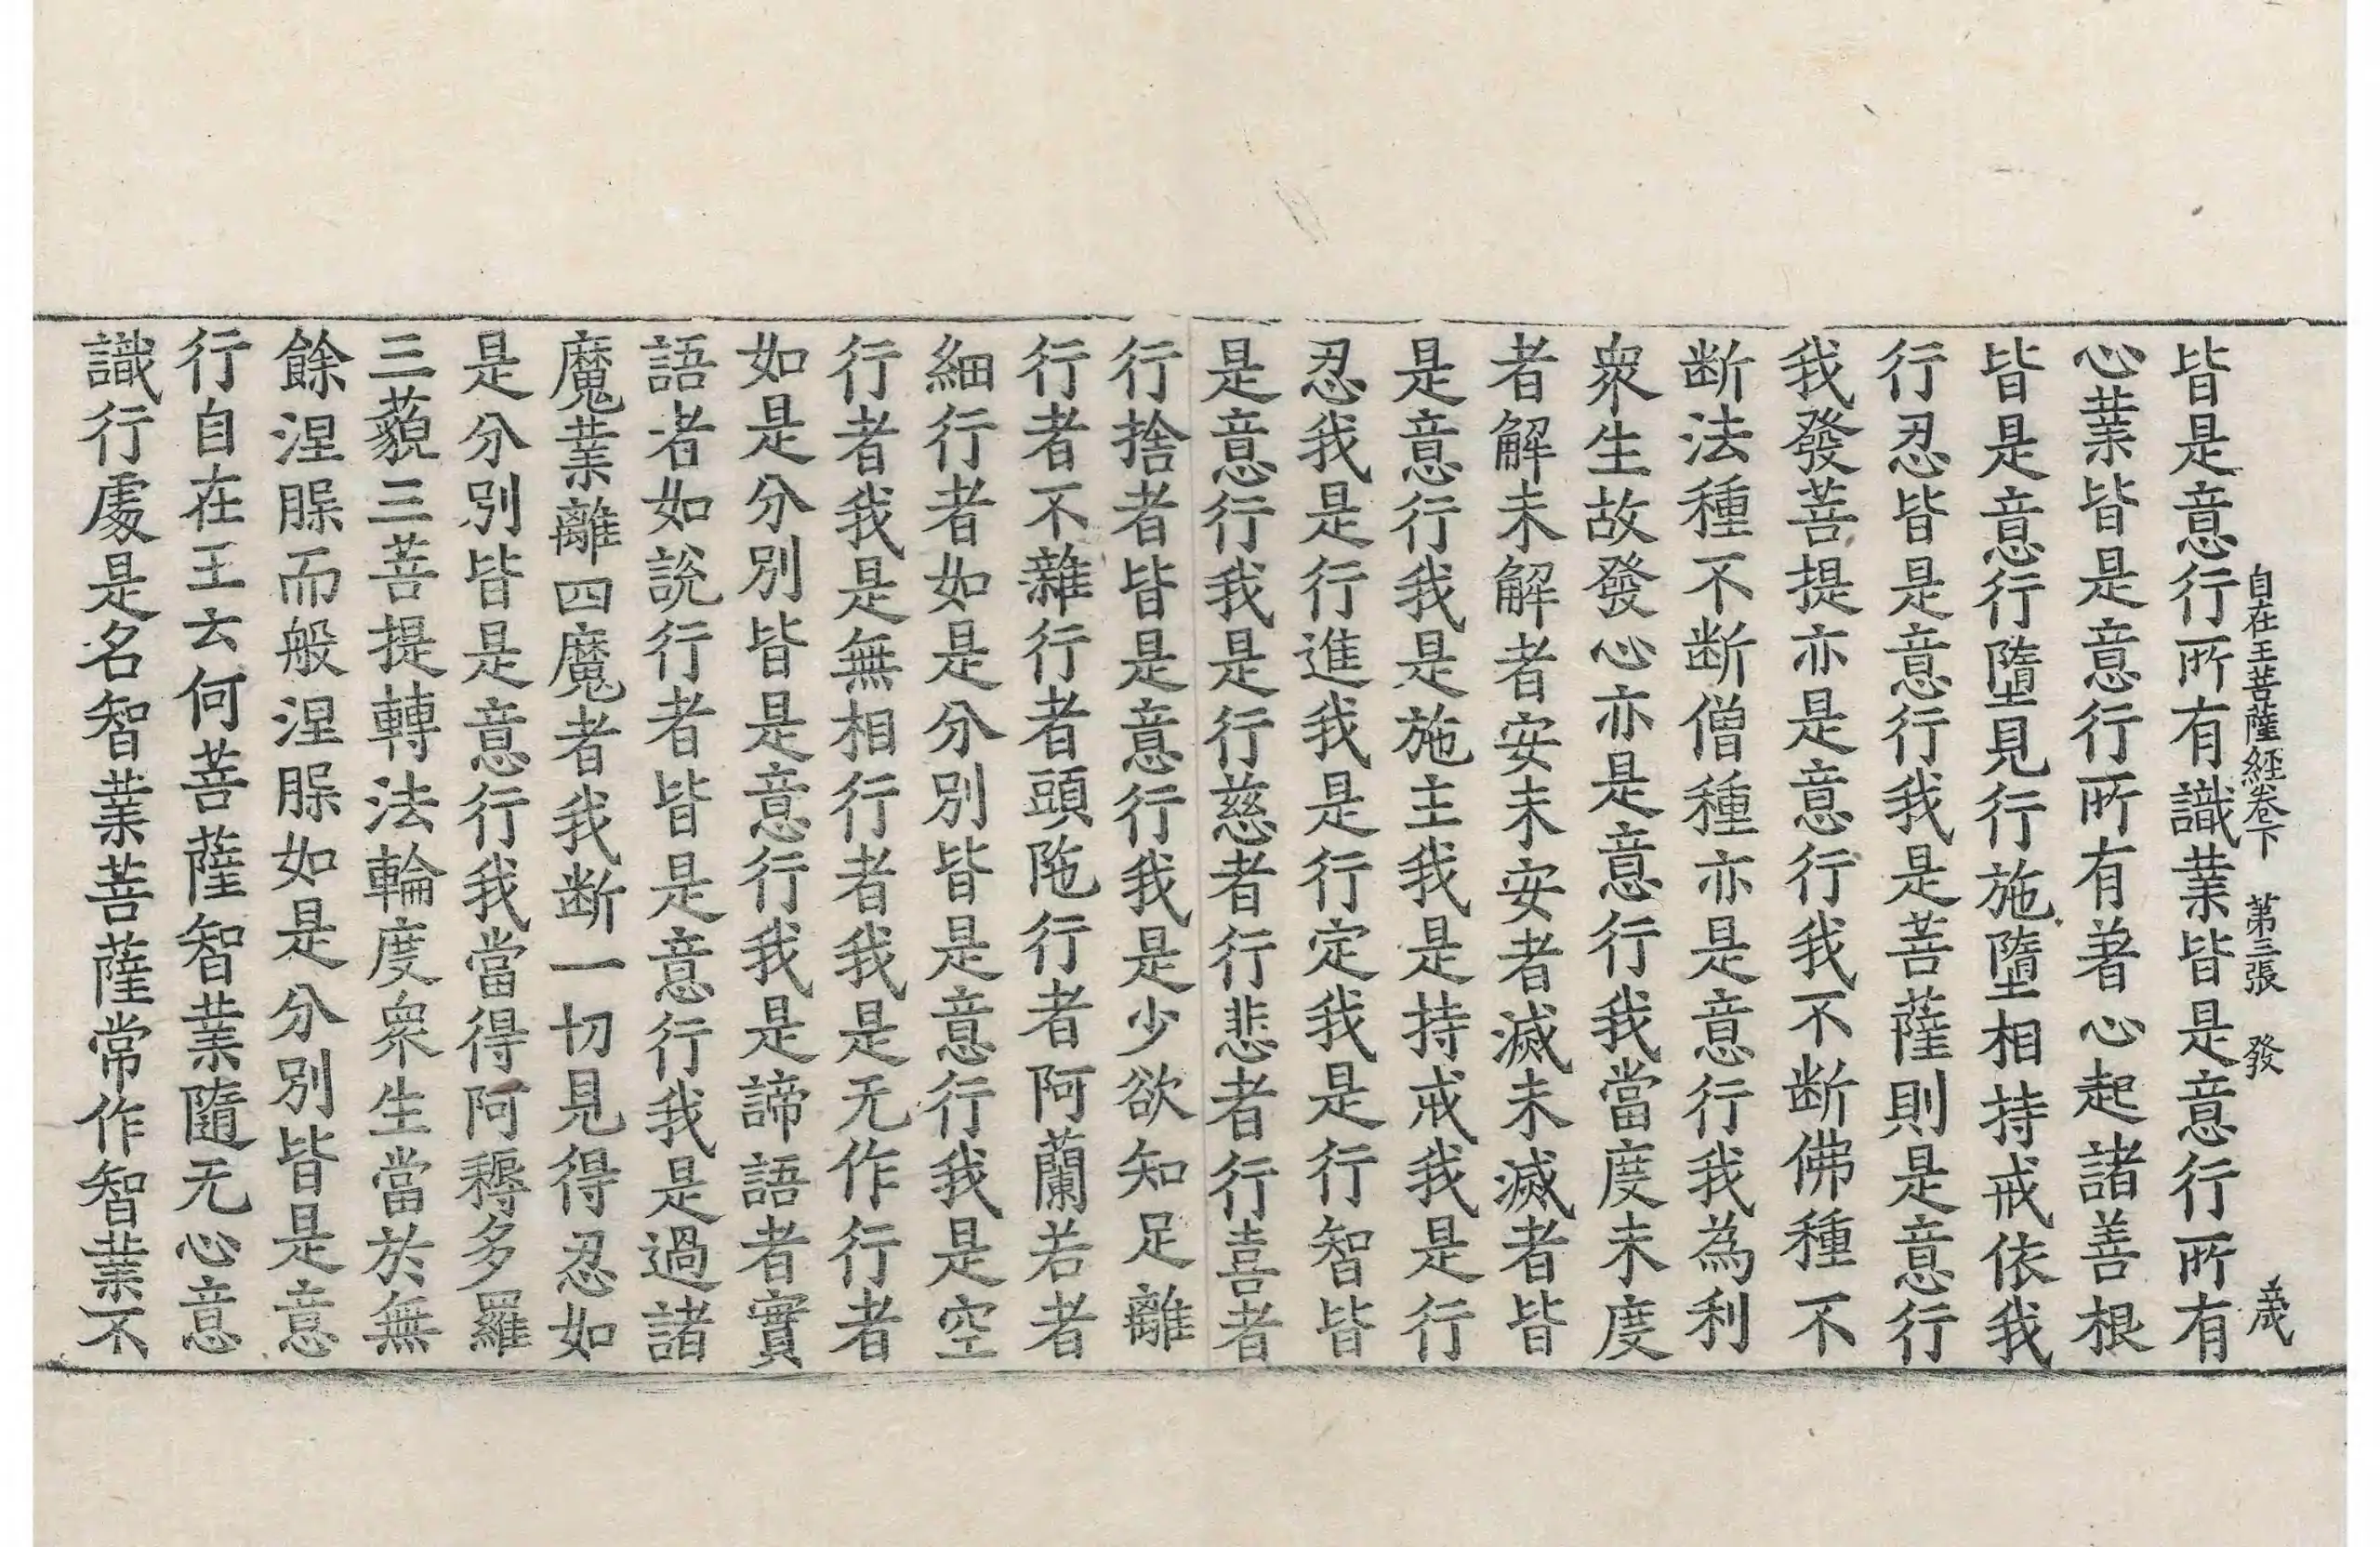 自在王菩薩経卷下 第三張 發 㦯
皆是意行所有識業皆是意行所有
心業皆是意行所有著心起諸善根
皆是意行墮見行施墮相持戒依我
行忍皆是意行我是菩薩則是意行
我發菩提亦是意行我不断佛種不
断法種不断僧種亦是意行我為利
衆生故發心亦是意行我當度未度
者解未解者安未安者滅未滅者皆
是意行我是施主我是持戒我是行
忍我是行進我是行定我是行智皆
是意行我是行慈者行悲者行喜者
行捨者皆是意行我是少欲知足離
行者不雜行者頭陁行者阿蘭若者
細行者如是分別皆是意行我是空
行者我是無相行者我是无作行者
如是分別皆是意行我是諦語者實
語者如說行者皆是意行我是過諸
魔業離四魔者我断一切見得忍如
是分別皆是意行我當得阿耨多羅
三藐三菩提轉法輪度衆生當於無
餘涅槃而般涅槃如是分別皆是意
行自在王云何菩薩智業隨无心意
識行處是名智業菩薩常作智業不